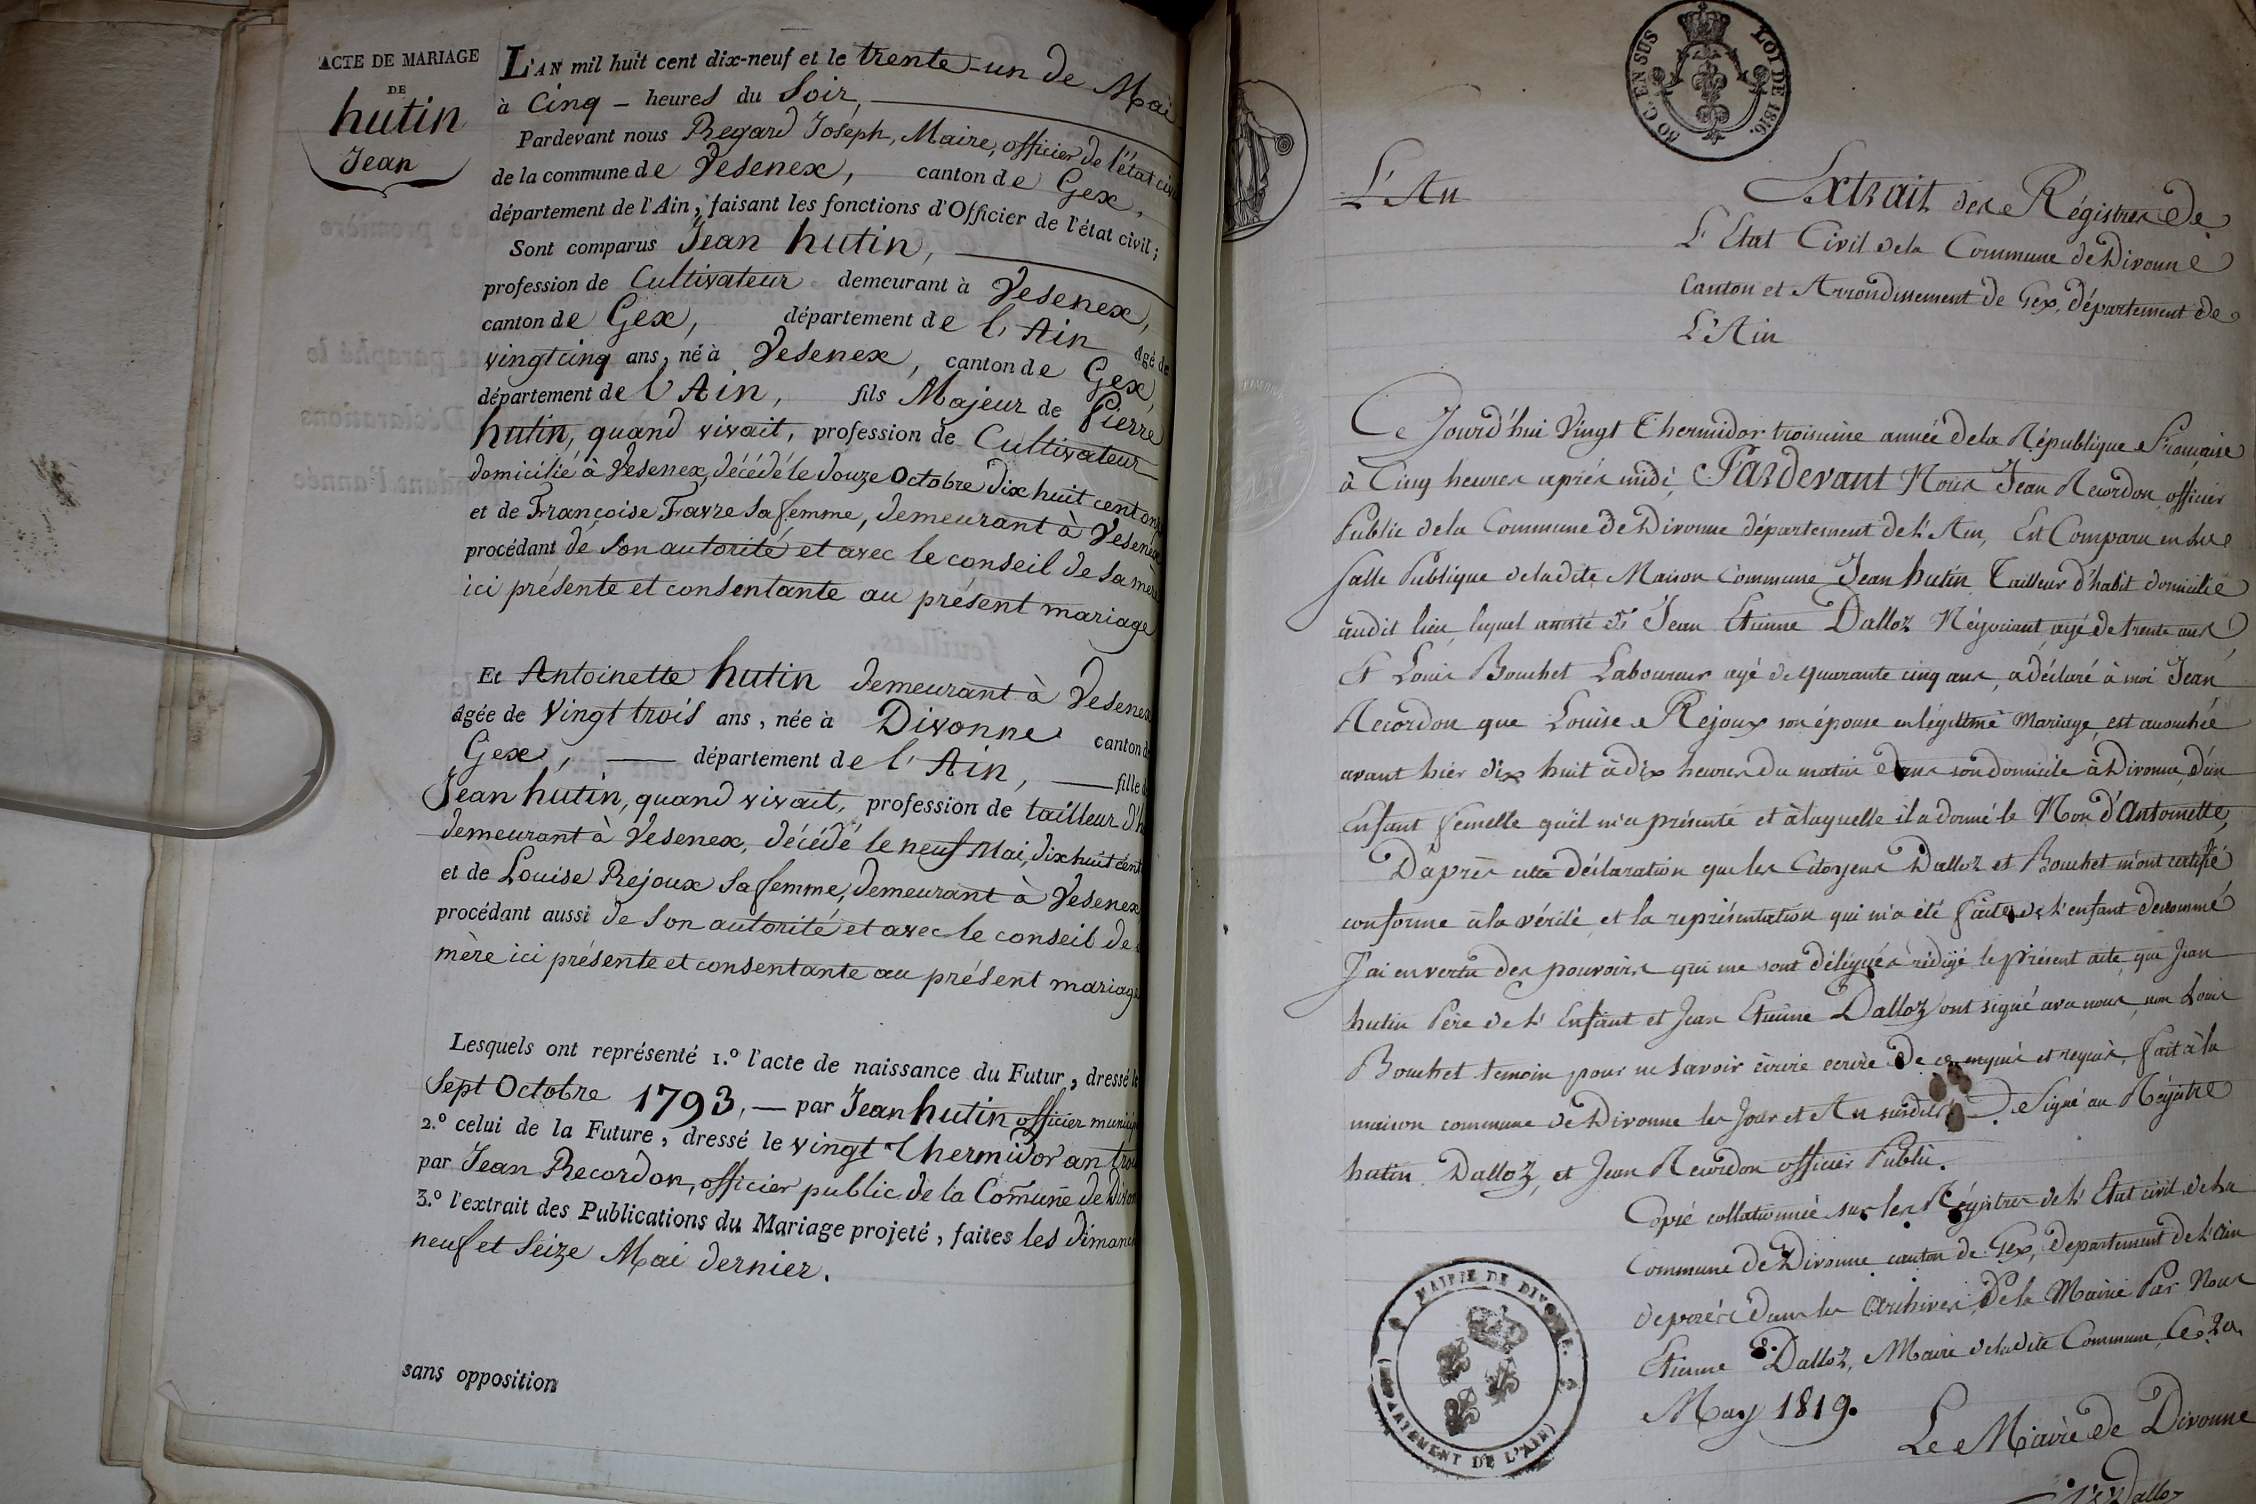 ACTE DE MARIAGE
DE
hutin
Jean
L'AN mil huit cent dix-neuf et le trente-un de Mai
à Cinq - heures du Soir,
Pardevant nous Regard Joseph, Maire, officier de l'état civil
de la commune de Vesenex, canton de Gex,
département de l'Ain, faisant les fonctions d'Officier de l'état civil;
Sont comparus Jean hutin,
profession de Cultivateur demeurant à Vesenex,
canton de Gex, département de l'Ain agé de
vingtcinq ans, né à Vesenex, canton de Gex,
département de l'Ain, fils Majeur de Pierre
hutin, quand vivait, profession de Cultivateur
domicilié à Vesenex, décédé le douze Octobre dix huit cent onze
et de Françoise Favre sa femme, demeurant à Vesenex
procédant de son autorité et avec le conseil de sa mère
ici présente et consentante au présent mariage
Et Antoinette hutin demeurant à Vesenex
agée de Vingt trois ans, née à Divonne canton de
Gex, département de l'Ain, fille de
Jean hutin, quand vivait, profession de tailleur d'h
demeurant à Vesenex, décédé le neuf Mai, dix huit cent
et de Louise Rejoux sa femme, demeurant à Vesenex
procédant aussi de son autorité et avec le conseil de
mère ici présente et consentante au présent mariage
Lesquels ont représenté 1.º l'acte de naissance du Futur, dressé le
sept Octobre 1793, - par Jean hutin officier municip
2.º celui de la Future, dressé le vingt Thermidor an trois
par Jean Recordon, officier public de la Comune de Divon
3.º l'extrait des Publications du Mariage projeté, faites les dimanc
neuf et seize Mai dernier.
sans opposition
50 C. EN SUS LOI DE 1816.
L'An
Extrait des Régistres de
L'Etat Civil de la Commune de Divonne
Canton et Arrondissement de Gex, département de
L'Ain
Ce Jourd'hui Vingt Thermidor troisieme année de la République Française
à Cinq heures après midi, Pardevant Nous Jean Recordon, officier
Public de la Commune de Divonne département de l'Ain, Est Comparu en la
salle Publique de ladite Maison Commune Jean hutin Tailleur d'habit domicilié
audit lieu, lequel assisté de Jean Etienne Dalloz Négociant, agé de trente ans
Et Louis Bouchet Laboureur agé de quarante cinq ans, a déclaré à moi Jean
Recordon que Louise Rejoux son épouse en légitime Mariage, est accouchée
avant hier dix huit à dix heures du matin dans son domicile à Divonne, d'un
Enfant femelle qu'il m'a présenté et à laquelle il a donné le Nom d'Antoinette,
D'après cette déclaration que les Citoyens Dalloz et Bouchet m'ont certifié
conforme à la vérité, et la représentation qui m'a été faite de l'enfant denommé
J'ai en vertu des pouvoirs qui me sont délégués rédigé le présent acte que Jean
hutin Père de l'Enfant et Jean Etienne Dalloz ont signé avec nous, non Louis
Bouchet temoin pour ne savoir écrire ecrire de ce enquis et requis, fait à la
maison commune de Divonne les Jour et An susdits. Signé au Régistre
hutin Dalloz, et Jean Recordon officier Public.
Copié collationnée sur les Régistres de l'Etat civil de la
Commune de Divonne canton de Gex, departement de l'Ain
deposés dans les Archives de la Mairie Par Nous
Etienne Dalloz, Maire de ladite Commune, Ce 20
May 1819.
Le Maire de Divonne
Dalloz
MAIRIE DE DIVONNE.
(DEPARTEMENT DE L'AIN)